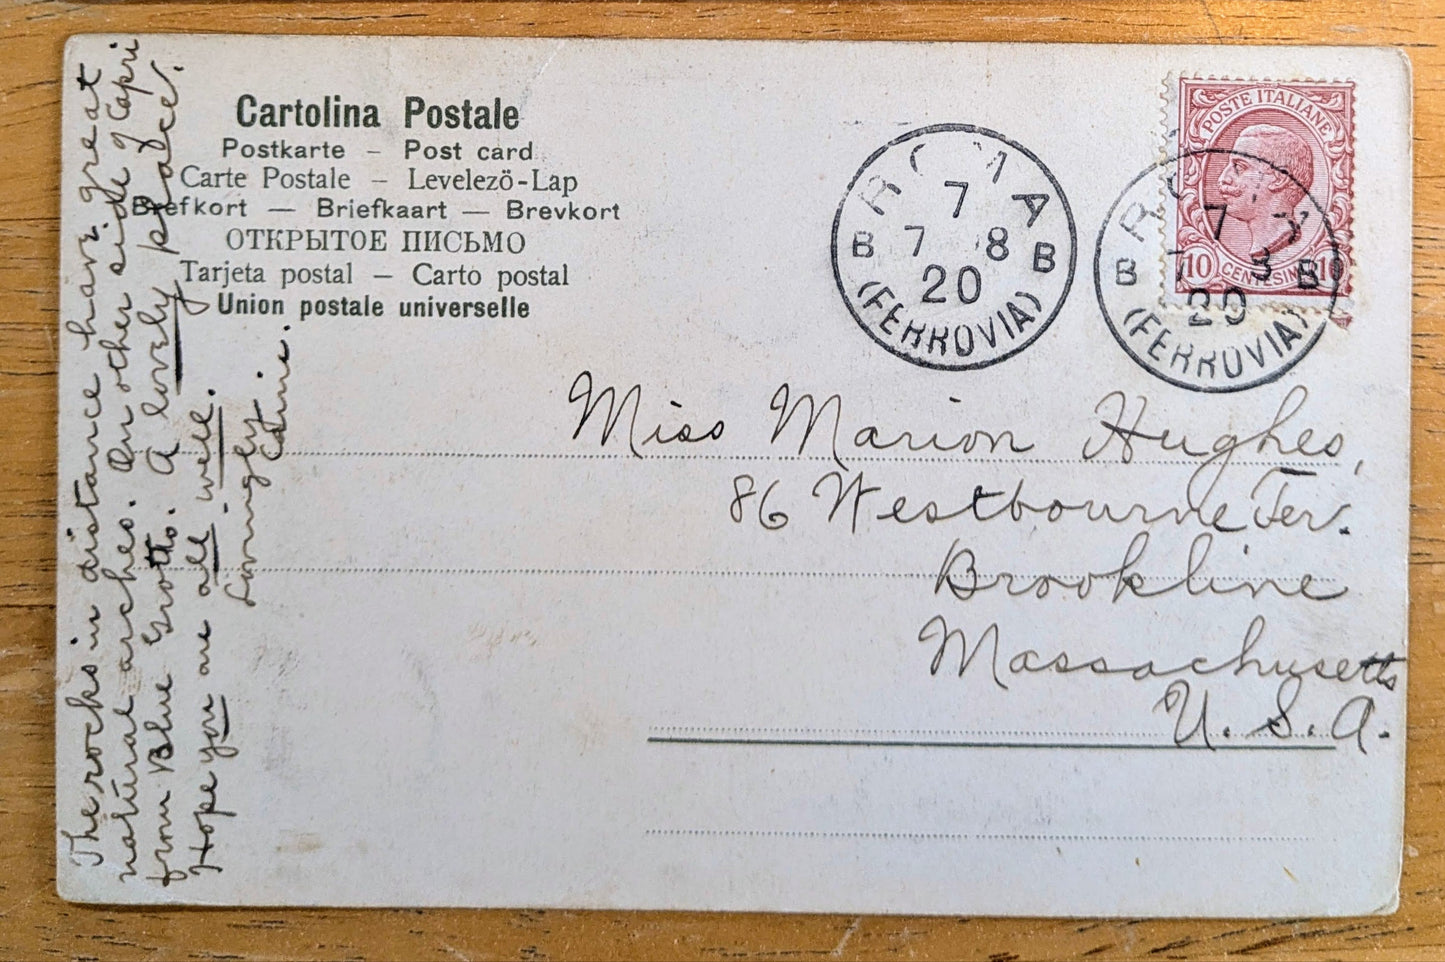 Cartolina Postale
Postkarte – Post card
Carte Postale – Levelező-Lap
Brefkort — Briefkaart — Brevkort
ОТКРЫТОЕ ПИСЬМО
Tarjeta postal – Carto postal
Union postale universelle
ROMA
7
B 7 8 B
20
(FERROVIA)
POSTE ITALIANE
10 CENTESIMI 10
RO
7
B 7 B
20
(FERROVIA)
Miss Marion Hughes,
86 Westbourne Ter.
Brookline
Massachusetts
U. S. A.
The rocks in distance have great
natural arches. On other side of Capri
from Blue Grotto. A lovely place.
Hope you are all well.
Lovingly